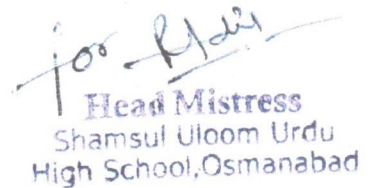 for
Head Mistress
Shamsul Uloom Urdu
High School,Osmanabad